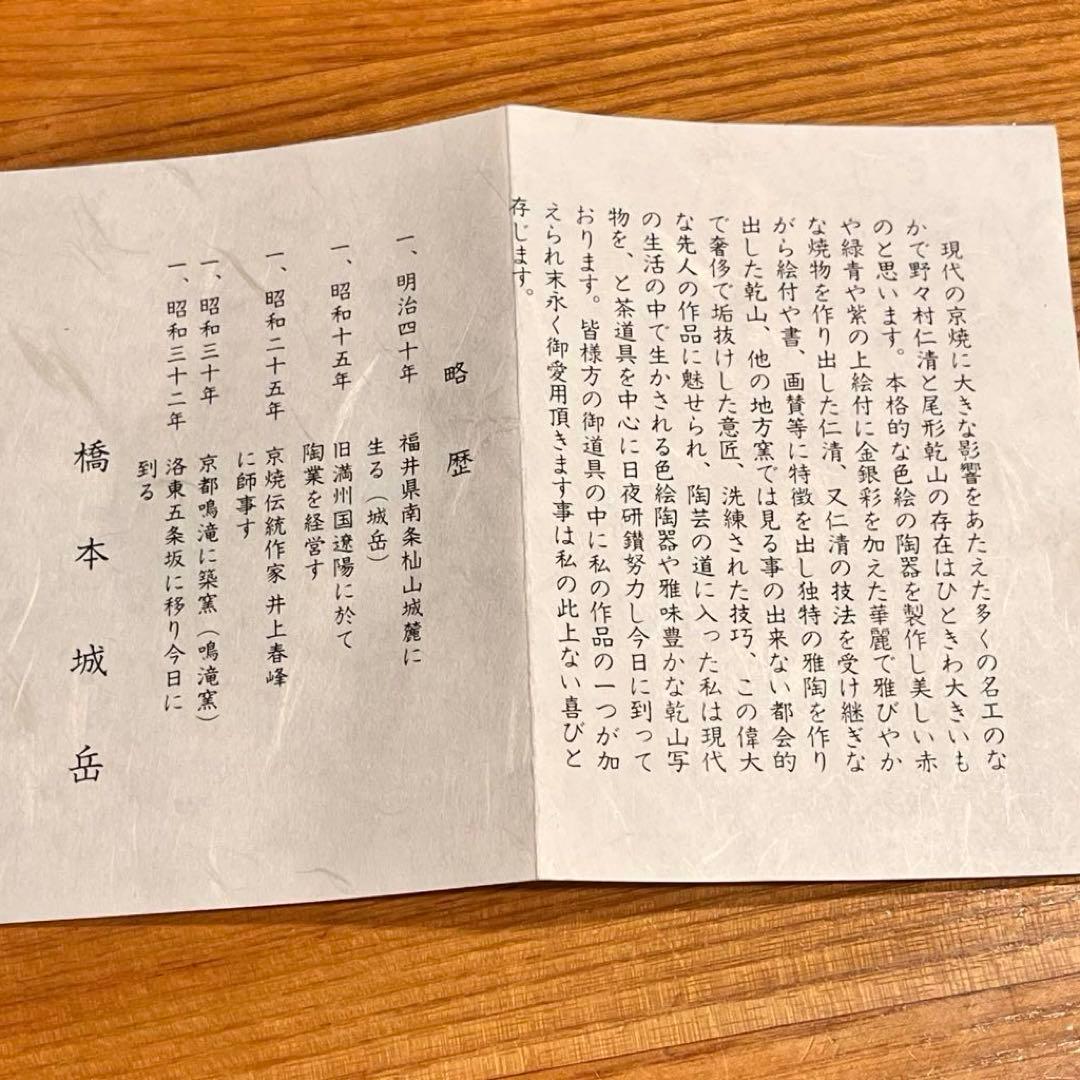 現代の京焼に大きな影響をあたえた多くの名工のな
かで野々村仁清と尾形乾山の存在はひときわ大きいも
のと思います。本格的な色絵の陶器を製作し美しい赤
や緑青や紫の上絵付に金銀彩を加えた華麗で雅びやか
な焼物を作り出した仁清、又仁清の技法を受け継ぎな
がら絵付や書、画賛等に特徴を出し独特の雅陶を作り
出した乾山、他の地方窯では見る事の出来ない都会的
で奢侈で垢抜けした意匠、洗練された技巧、この偉大
な先人の作品に魅せられ、陶芸の道に入った私は現代
の生活の中で生かされる色絵陶器や雅味豊かな乾山写
物を、と茶道具を中心に日夜研鑚努力し今日に到って
おります。皆様方の御道具の中に私の作品の一つが加
えられ末永く御愛用頂きます事は私の此上ない喜びと
存じます。
略歴
一、明治四十年 福井県南条杣山城麓に
生る（城岳）
一、昭和十五年 旧満州国遼陽に於て
陶業を経営す
一、昭和二十五年 京焼伝統作家 井上春峰
に師事す
一、昭和三十年 京都鳴滝に築窯（鳴滝窯）
一、昭和三十二年 洛東五条坂に移り今日に
到る
橋本城岳